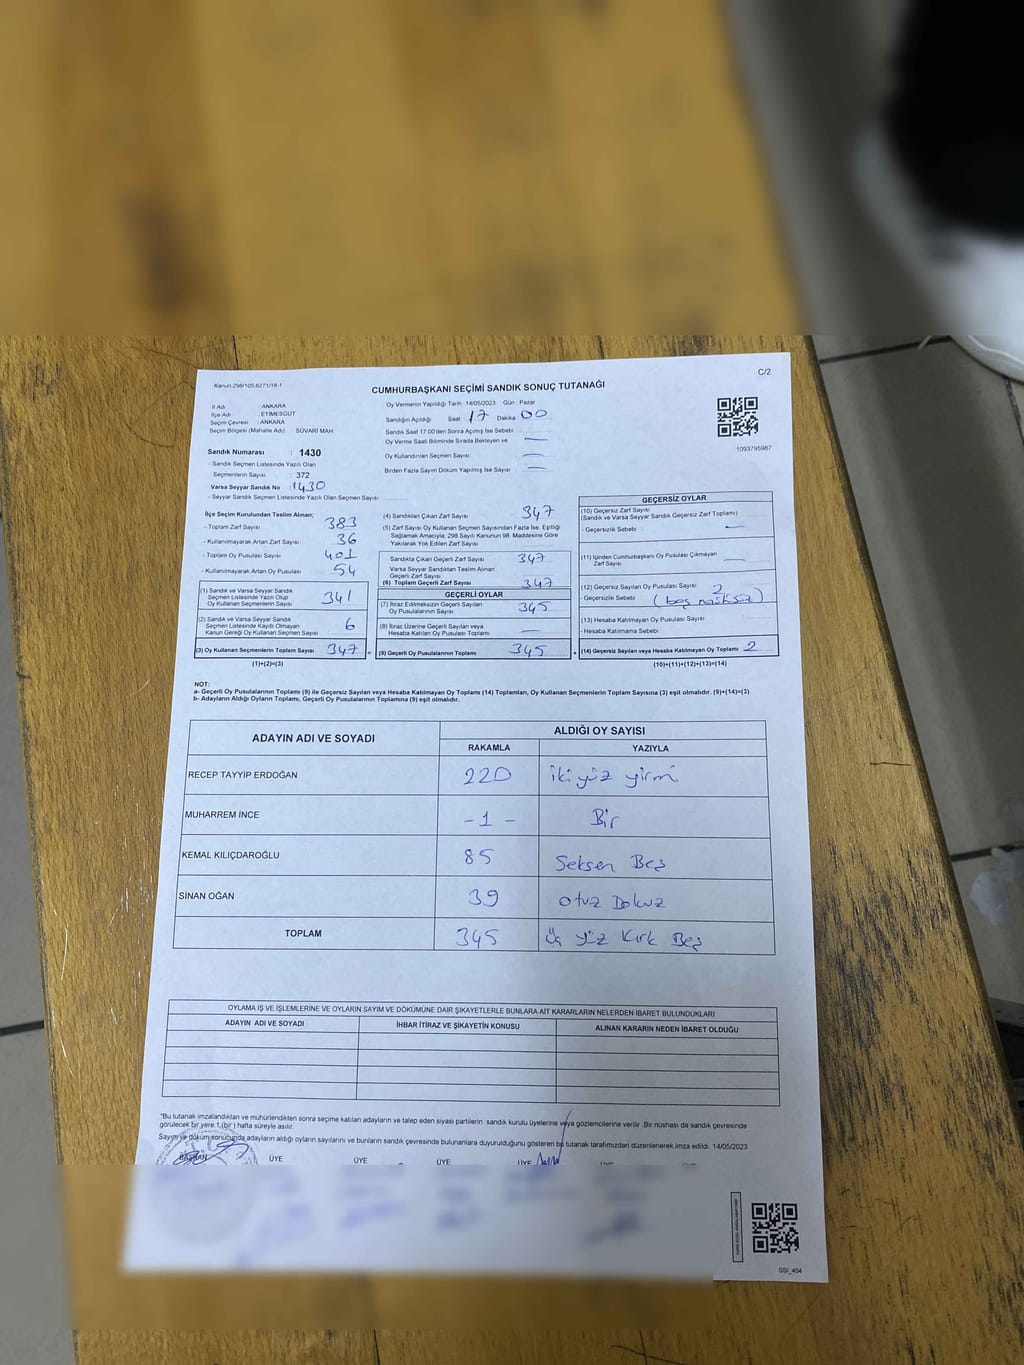 Kanun:298/105,6271/18-1
C/2
CUMHURBAŞKANI SEÇİMİ SANDIK SONUÇ TUTANAĞI
İl Adı : ANKARA
İlçe Adı : ETİMESGUT
Seçim Çevresi : ANKARA
Seçim Bölgesi (Mahalle Adı) SÜVARİ MAH.
Oy Vermenin Yapıldığı Tarih :14/05/2023 Gün : Pazar
Sandığın Açıldığı Saat 17 Dakika 00
Sandık Saat 17:00'den Sonra Açılmış İse Sebebi
Oy Verme Saati Bitiminde Sırada Bekleyen ve —
Oy Kullandırılan Seçmen Sayısı —
Birden Fazla Sayım Döküm Yapılmış İse Sayısı —
1093795987
Sandık Numarası : 1430
- Sandık Seçmen Listesinde Yazılı Olan
Seçmenlerin Sayısı : 372
Varsa Seyyar Sandık No : 1430
- Seyyar Sandık Seçmen Listesinde Yazılı Olan Seçmen Sayısı
İlçe Seçim Kurulundan Teslim Alınan;
- Toplam Zarf Sayısı 383
- Kullanılmayarak Artan Zarf Sayısı 36
- Toplam Oy Pusulası Sayısı 401
- Kullanılmayarak Artan Oy Pusulası 54
(1) Sandık ve Varsa Seyyar Sandık
Seçmen Listesinde Yazılı Olup
Oy Kullanan Seçmenlerin Sayısı 341
(2) Sandık ve Varsa Seyyar Sandık
Seçmen Listesinde Kayıtlı Olmayan
Kanun Gereği Oy Kullanan Seçmen Sayısı 6
(3) Oy Kullanan Seçmenlerin Toplam Sayısı 347 =
(1)+(2)=(3)
(4) Sandıktan Çıkan Zarf Sayısı 347
(5) Zarf Sayısı Oy Kullanan Seçmen Sayısından Fazla İse, Eşitliği
Sağlamak Amacıyla; 298 Sayılı Kanunun 98. Maddesine Göre
Yakılarak Yok Edilen Zarf Sayısı
Sandıkta Çıkan Geçerli Zarf Sayısı 347
Varsa Seyyar Sandıktan Teslim Alınan
Geçerli Zarf Sayısı
(6) Toplam Geçerli Zarf Sayısı 347
GEÇERLİ OYLAR
(7) İtiraz Edilmeksizin Geçerli Sayılan
Oy Pusulalarının Sayısı 345
(8) İtiraz Üzerine Geçerli Sayılan veya
Hesaba Katılan Oy Pusulası Toplamı —
(9) Geçerli Oy Pusulalarının Toplamı 345 +
GEÇERSİZ OYLAR
(10) Geçersiz Zarf Sayısı
(Sandık ve Varsa Seyyar Sandık Geçersiz Zarf Toplamı)
- Geçersizlik Sebebi —
(11) İçinden Cumhurbaşkanı Oy Pusulası Çıkmayan
Zarf Sayısı —
(12) Geçersiz Sayılan Oy Pusulası Sayısı 2
- Geçersizlik Sebebi
(13) Hesaba Katılmayan Oy Pusulası Sayısı
- Hesaba Katılmama Sebebi
(14) Geçersiz Sayılan veya Hesaba Katılmayan Oy Toplamı 2
(10)+(11)+(12)+(13)=(14)
NOT:
a- Geçerli Oy Pusulalarının Toplamı (9) ile Geçersiz Sayılan veya Hesaba Katılmayan Oy Toplamı (14) Toplamları, Oy Kullanan Seçmenlerin Toplam Sayısına (3) eşit olmalıdır. (9)+(14)=(3)
b- Adayların Aldığı Oyların Toplamı, Geçerli Oy Pusulalarının Toplamına (9) eşit olmalıdır.
ADAYIN ADI VE SOYADI
ALDIĞI OY SAYISI
RAKAMLA YAZIYLA
RECEP TAYYİP ERDOĞAN 220 iki yüz yirmi
MUHARREM İNCE -1- Bir
KEMAL KILIÇDAROĞLU 85 Seksen Beş
SİNAN OĞAN 39 otuz Dokuz
TOPLAM 345 üç yüz Kırk Beş
OYLAMA İŞ VE İŞLEMLERİNE VE OYLARIN SAYIM VE DÖKÜMÜNE DAİR ŞİKAYETLERLE BUNLARA AİT KARARLARIN NELERDEN İBARET BULUNDUKLARI
ADAYIN ADI VE SOYADI İHBAR İTİRAZ VE ŞİKAYETİN KONUSU ALINAN KARARIN NEDEN İBARET OLDUĞU
*Bu tutanak imzalandıktan ve mühürlendikten sonra seçime katılan adayların ve talep eden siyasi partilerin sandık kurulu üyelerine veya gözlemcilerine verilir. Bir nüshası da sandık çevresinde
görülecek bir yere 1 (bir ) hafta süreyle asılır.
Sayım ve döküm sonucunda adayların aldığı oyların sayılarını ve bunların sandık çevresinde bulunanlara duyurulduğunu gösteren bu tutanak tarafımızdan düzenlenerek imza edildi. 14/05/2023
BAŞKAN ÜYE ÜYE ÜYE ÜYE
GSI_404